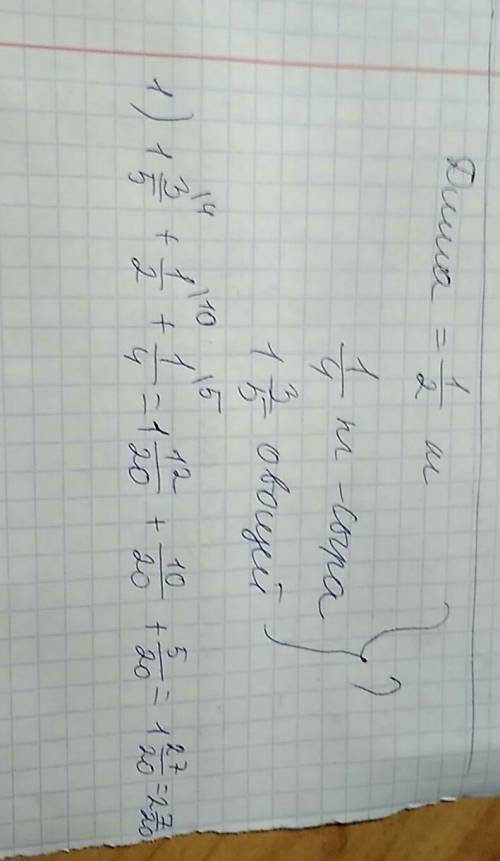 Дыша = 1/2 м
1/4 кг - сыра
1 3/5 овощей } ?
1) 1 3/5 \4 + 1/2 \10 + 1/4 \5 = 1 12/20 + 10/20 + 5/20 = 1 27/20 = 2 7/20